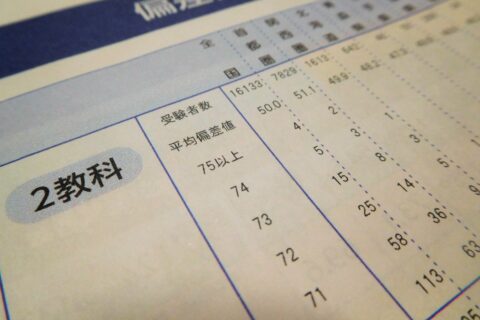 偏差
全国 首都圏 関西圏 北海道
2教科
受験者数 16133 7829 1613 642
平均偏差値 50.0 51.1 49.9 48.2 47.3
75以上 4 2 1
74 5 3 1
73 15 8 3
72 25 14 5 1
71 58 36 9
113 63